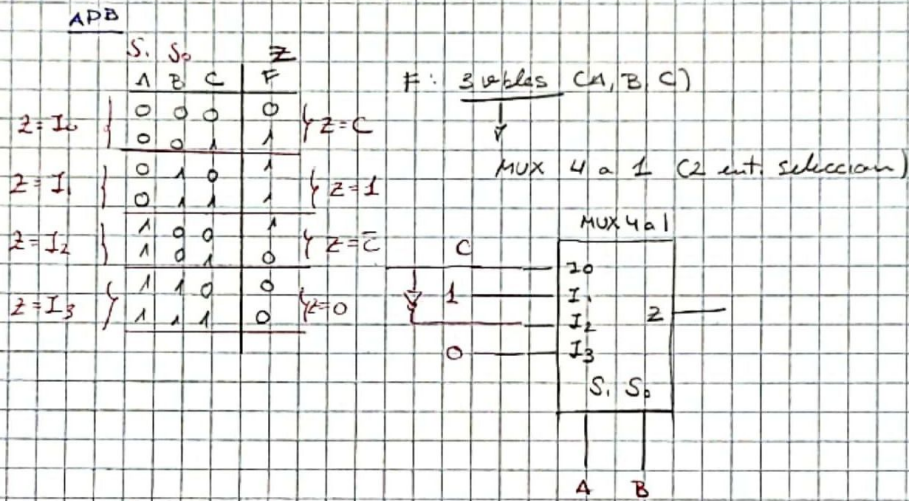 APB
S₁ S₀ Z
A B C F
0 0 0 0
0 0 1 1
0 1 0 1
0 1 1 1
1 0 0 1
1 0 1 0
1 1 0 0
1 1 1 0
Z=I₀
Z=I₁
Z=I₂
Z=I₃
Z=C
Z=1
Z=C̅
Z=0
F: 3 vbles (A, B, C)
MUX 4 a 1 (2 ent. seleccion)
MUX 4a1
C
1
0
I0
I₁
I₂
I₃
Z
S₁ S₀
A B